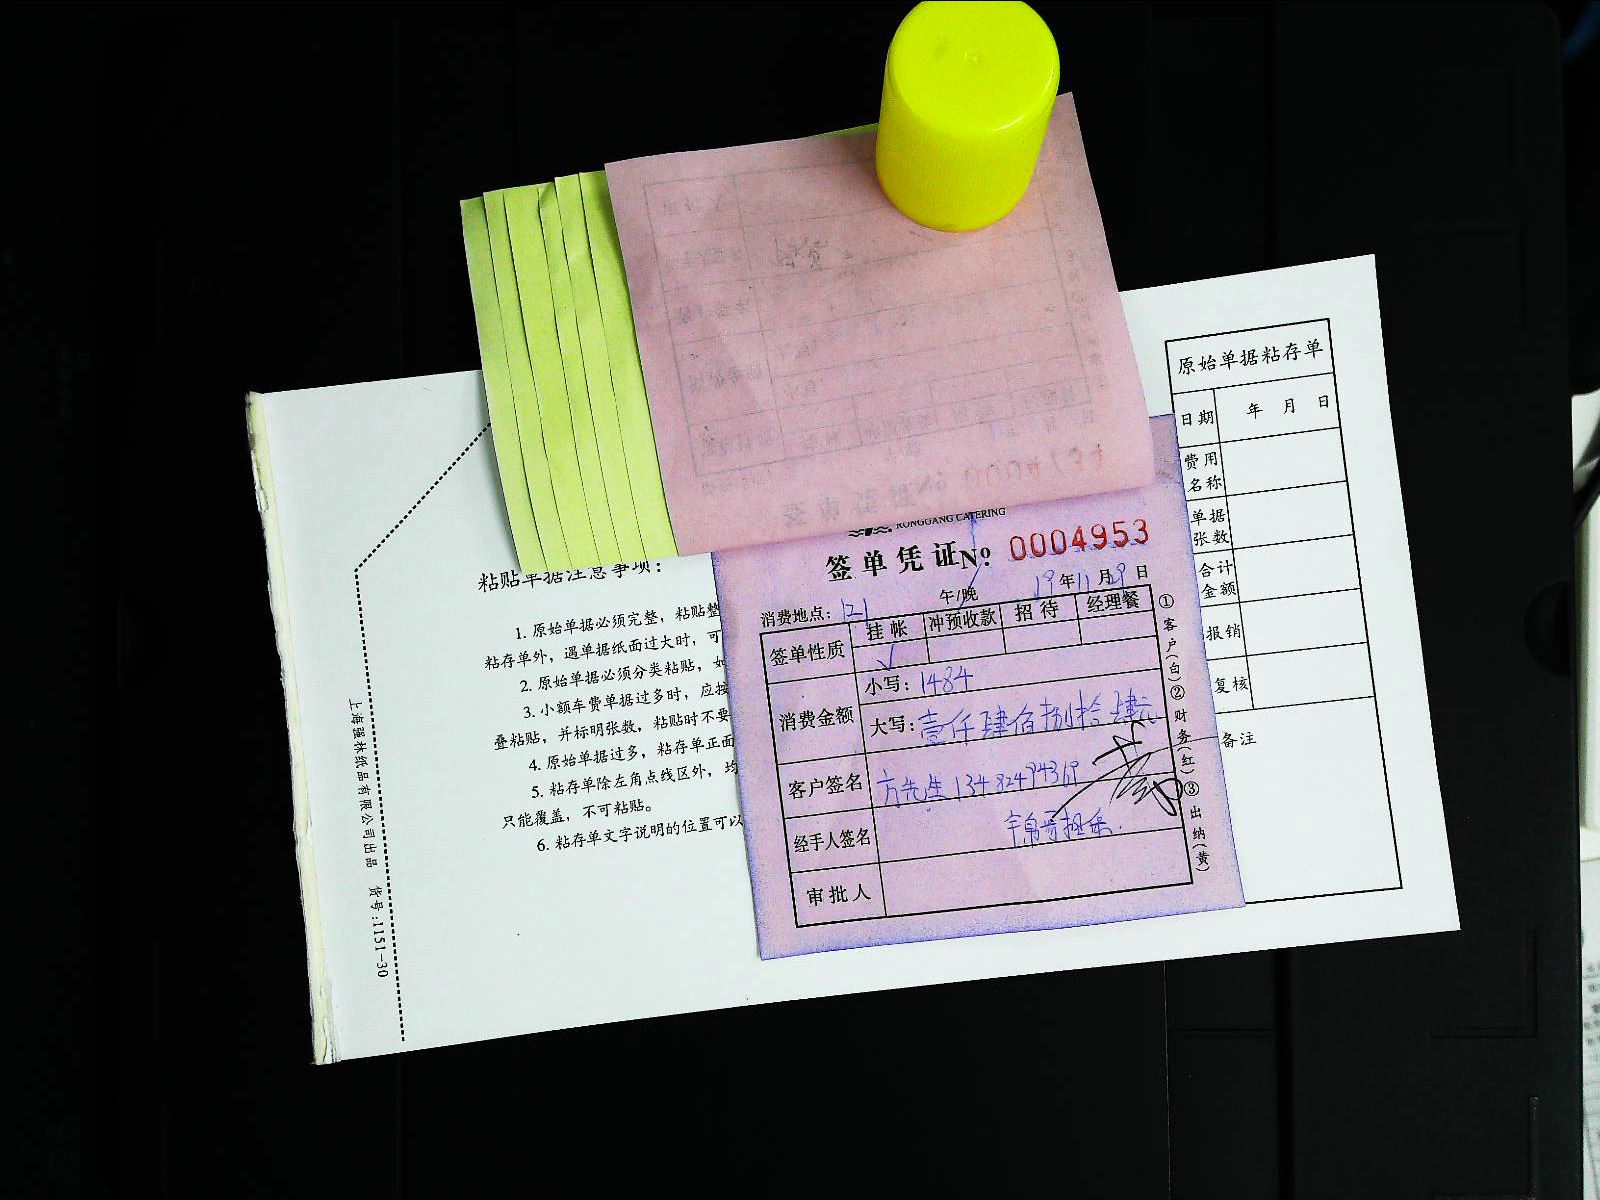 原始单据粘存单
日期 年 月 日
费用名称
单据张数
合计金额
报销
复核
备注
RONGGANG CATERING
签单凭证№: 0004953
19年11月29日
消费地点: 121 午/晚
签单性质 挂帐 冲预收款 招待 经理餐
✓
消费金额 小写: 1484
大写: 壹仟肆佰捌拾肆元
客户签名 方先生
经手人签名
审批人
①客户(白)②财务(红)③出纳(黄)
粘贴单据注意事项:
1. 原始单据必须完整，粘贴整
粘存单外，遇单据纸面过大时，可
2. 原始单据必须分类粘贴，如
3. 小额车费单据过多时，应按
叠粘贴，并标明张数，粘贴时不要
4. 原始单据过多，粘存单正面
5. 粘存单除左角点线区外，均
只能覆盖，不可粘贴。
6. 粘存单文字说明的位置可以
上海强林纸品有限公司出品 货号:1151-30